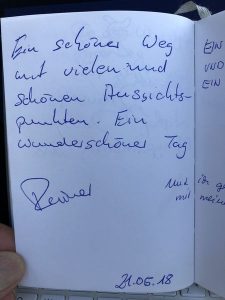 Ein schöner Weg
mit vielen und
schönen Aussichts-
punkten. Ein
wunderschöner Tag
Reiner
21.06.18
EIN
UND
EIN
und
mit